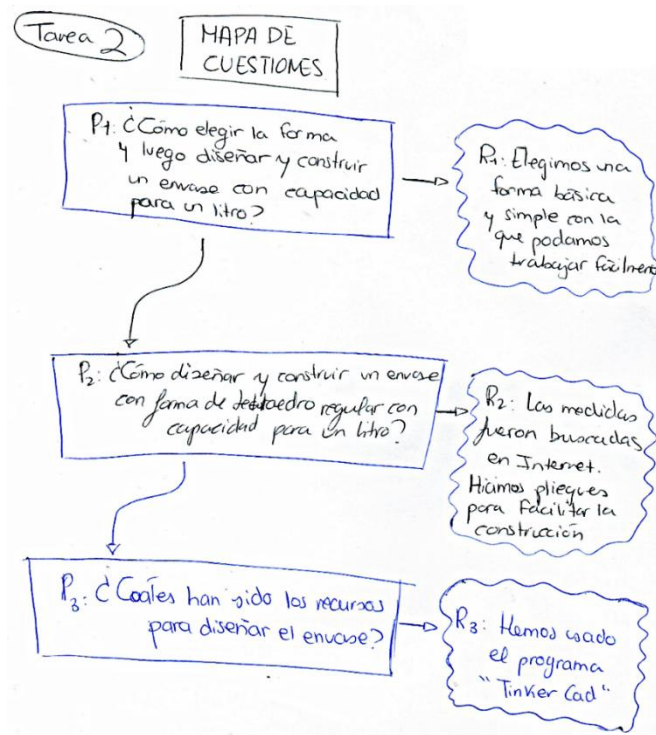 Tarea 2
MAPA DE
CUESTIONES
P1: ¿Cómo elegir la forma
y luego diseñar y construir
un envase con capacidad
para un litro?
R1: Elegimos una
forma básica
y simple con la
que podamos
trabajar fácilmen
P2: ¿Cómo diseñar y construir un envase
con forma de tetraedro regular con
capacidad para un litro?
R2: Las medidas
fueron buscadas
en Internet.
Hicimos pliegues
para facilitar la
construcción
P3: ¿Cuáles han sido los recursos
para diseñar el envase?
R3: Hemos usado
el programa
"Tinker Cad"